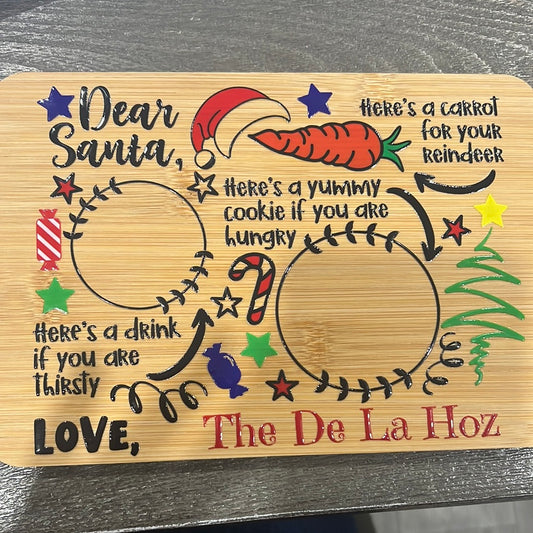 Dear
Santa,
Here's a carrot
for your
reindeer
Here's a yummy
cookie if you are
hungry
Here's a drink
if you are
thirsty
LOVE,
The De La Hoz